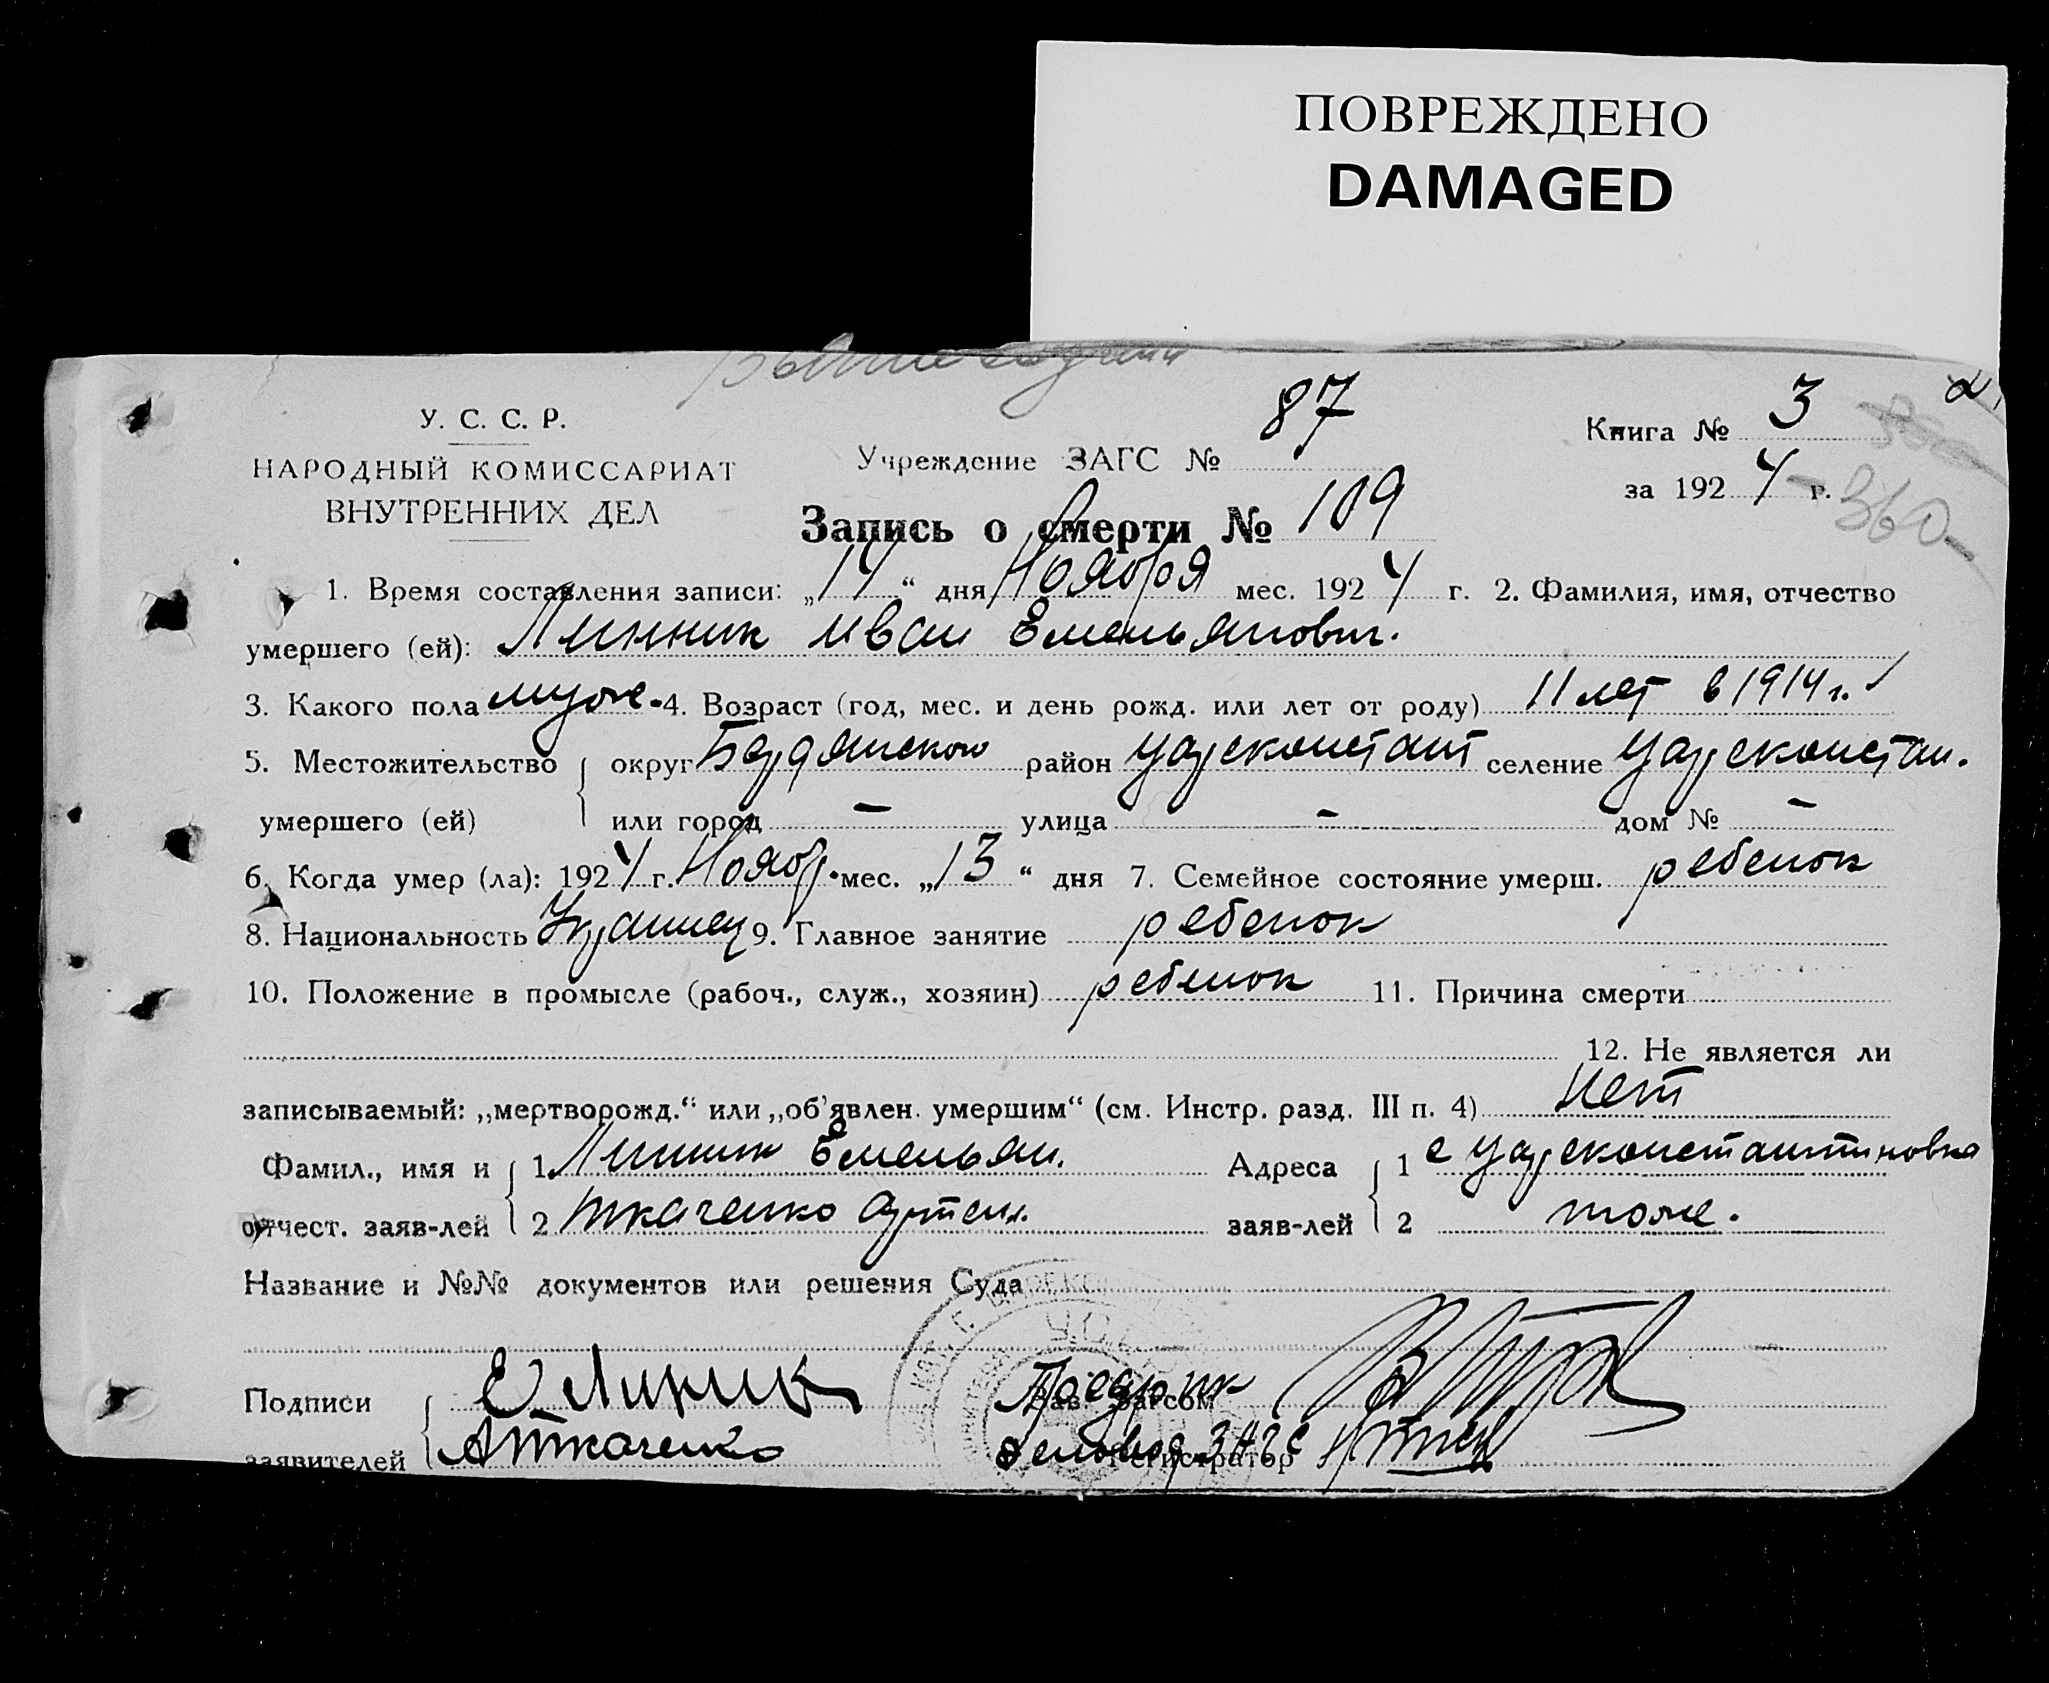 ПОВРЕЖДЕНО
DAMAGED
У. С. С. Р.
НАРОДНЫЙ КОМИССАРИАТ
ВНУТРЕННИХ ДЕЛ
Учреждение ЗАГС № 87
Книга № 3
за 1924 г.
360
Запись о смерти № 109
1. Время составления записи: „14“ дня Ноября мес. 1924 г. 2. Фамилия, имя, отчество
умершего (ей): Линник Иван Емельянович.
3. Какого пола муж. 4. Возраст (год, мес. и день рожд. или лет от роду) 11 лет в 1914 г.
5. Местожительство округ Бердянского район Цареконстант селение Цареконстан.
умершего (ей) или город — улица — дом № —
6. Когда умер (ла): 1924 г. Ноябр. мес. „13“ дня 7. Семейное состояние умерш. ребенок
8. Национальность Украинец 9. Главное занятие ребенок
10. Положение в промысле (рабоч., служ., хозяин) ребенок 11. Причина смерти
12. Не является ли
записываемый: „мертворожд.“ или „об'явлен. умершим“ (см. Инстр. разд. III п. 4) нет
Фамил., имя и 1 Линник Емельян. Адреса 1 с Цареконстантиновка
отчест. заяв-лей 2 Ткаченко Артем. заяв-лей 2 тоже.
Название и №№ документов или решения Суда
Подписи Е Линник Зав. Загсом
заявителей А Ткаченко Деловод ЗАГС Регистратор